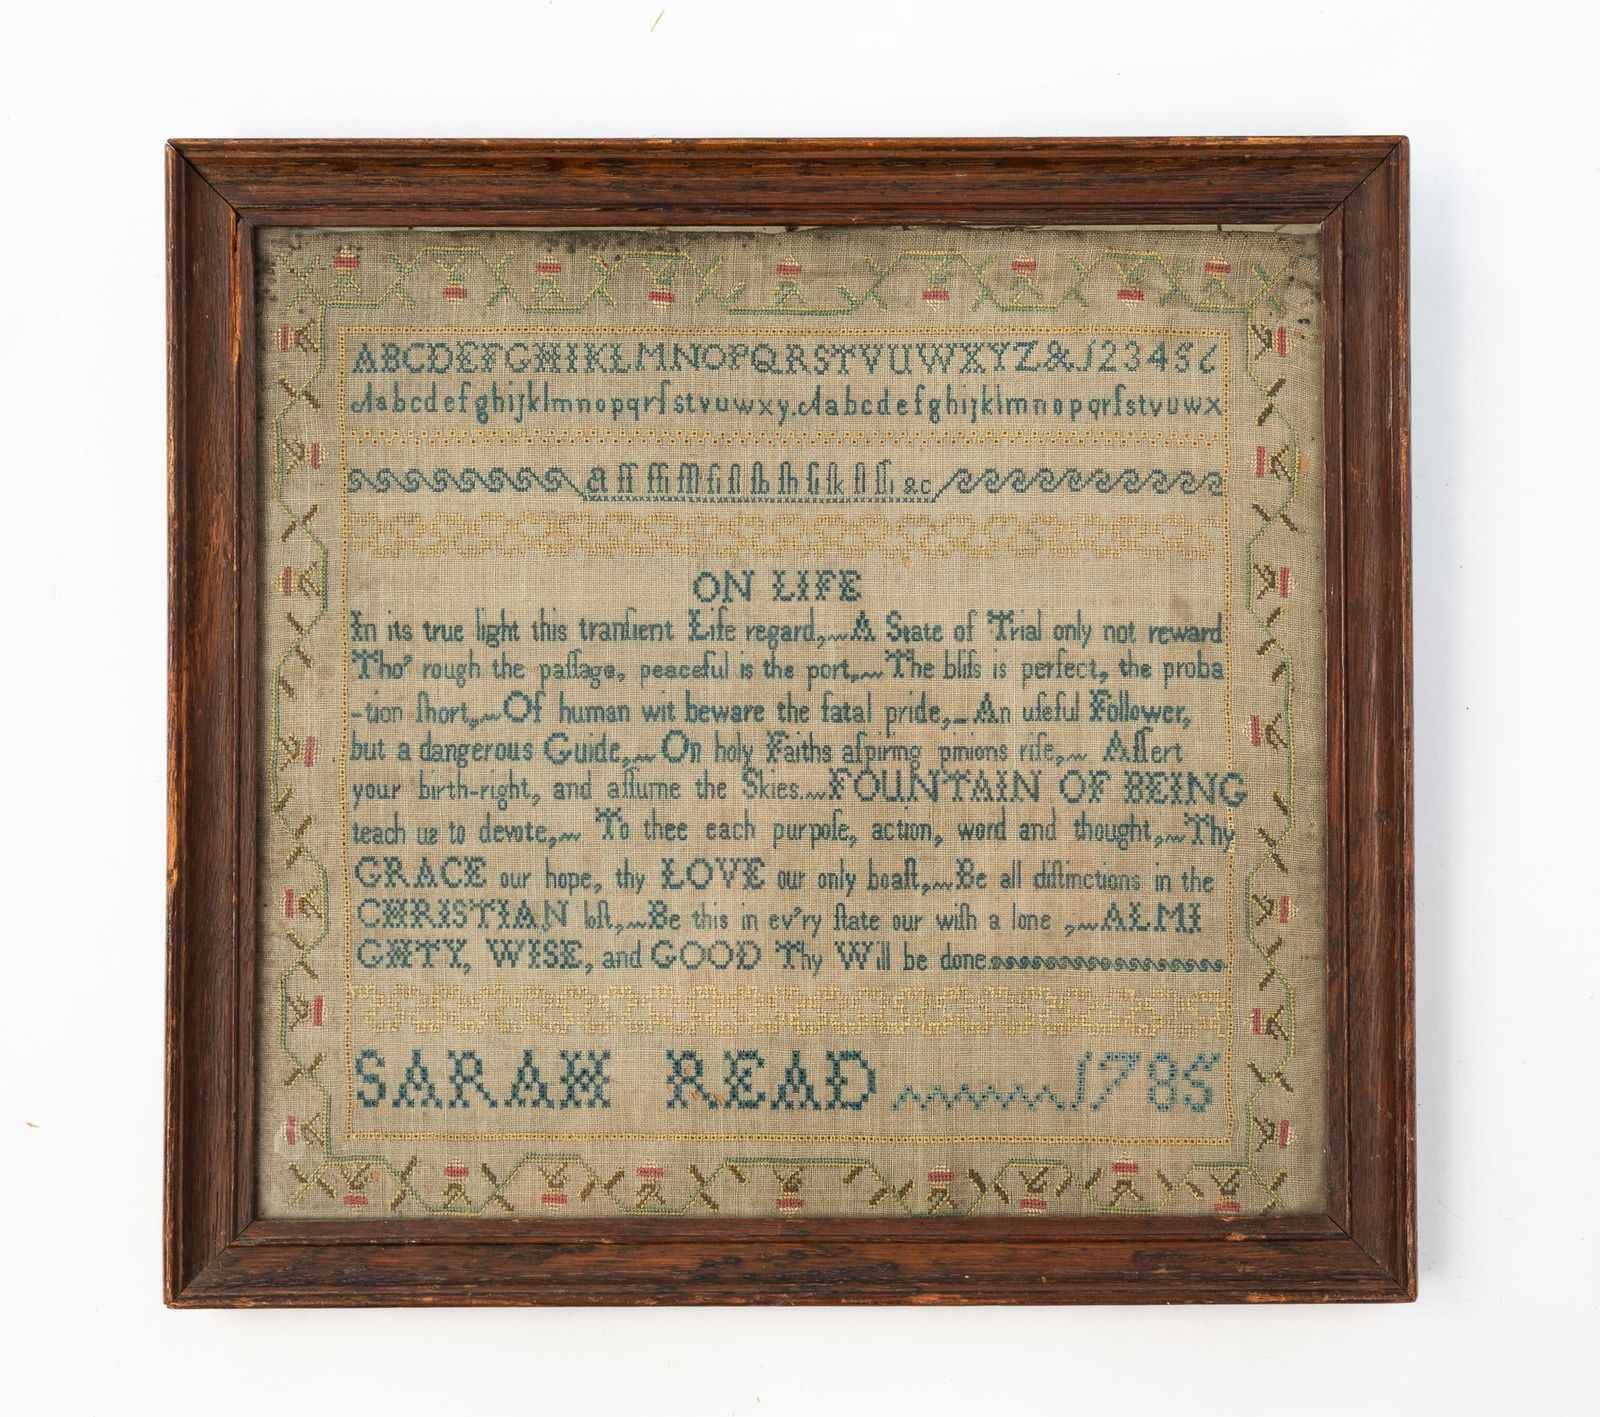 ABCDEFGHIKLMNOPQRSTVUWXYZ&123456
Aabcdefghijklmnopqrſstvuwxy.Aabcdefghijklmnopqrſstvuwx
&c
ON LIFE
In its true light this tranſient Life regard,~A State of Trial only not reward
Tho' rough the paſſage, peaceful is the port,~The bliſs is perfect, the proba
-tion ſhort,~Of human wit beware the fatal pride,~An uſeful Follower,
but a dangerous Guide,~On holy Faiths aſpiring pinions riſe,~Aſſert
your birth-right, and aſſume the Skies.~FOUNTAIN OF BEING
teach us to devote,~To thee each purpoſe, action, word and thought,~Thy
GRACE our hope, thy LOVE our only boaſt,~Be all diſtinctions in the
CHRISTIAN loſt,~Be this in ev'ry ſtate our wiſh a lone ,~ALMI
GHTY, WISE, and GOOD Thy Will be done
SARAH READ 1785